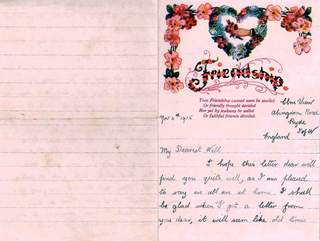 Friendship.
True Friendship cannot soon be
Or friendly thought derided
Nor yet by jealousy be
Or faithful friends divided.
Elm View
Abingdon Road
Nov 2nd 1915
Ryde
I of W
England
My Dearest Will
I hope this letter dear will
find you quite well, as I am pleased
to say we all are at home. I shall
be glad when I get a letter from
you dear, it will seem like old time